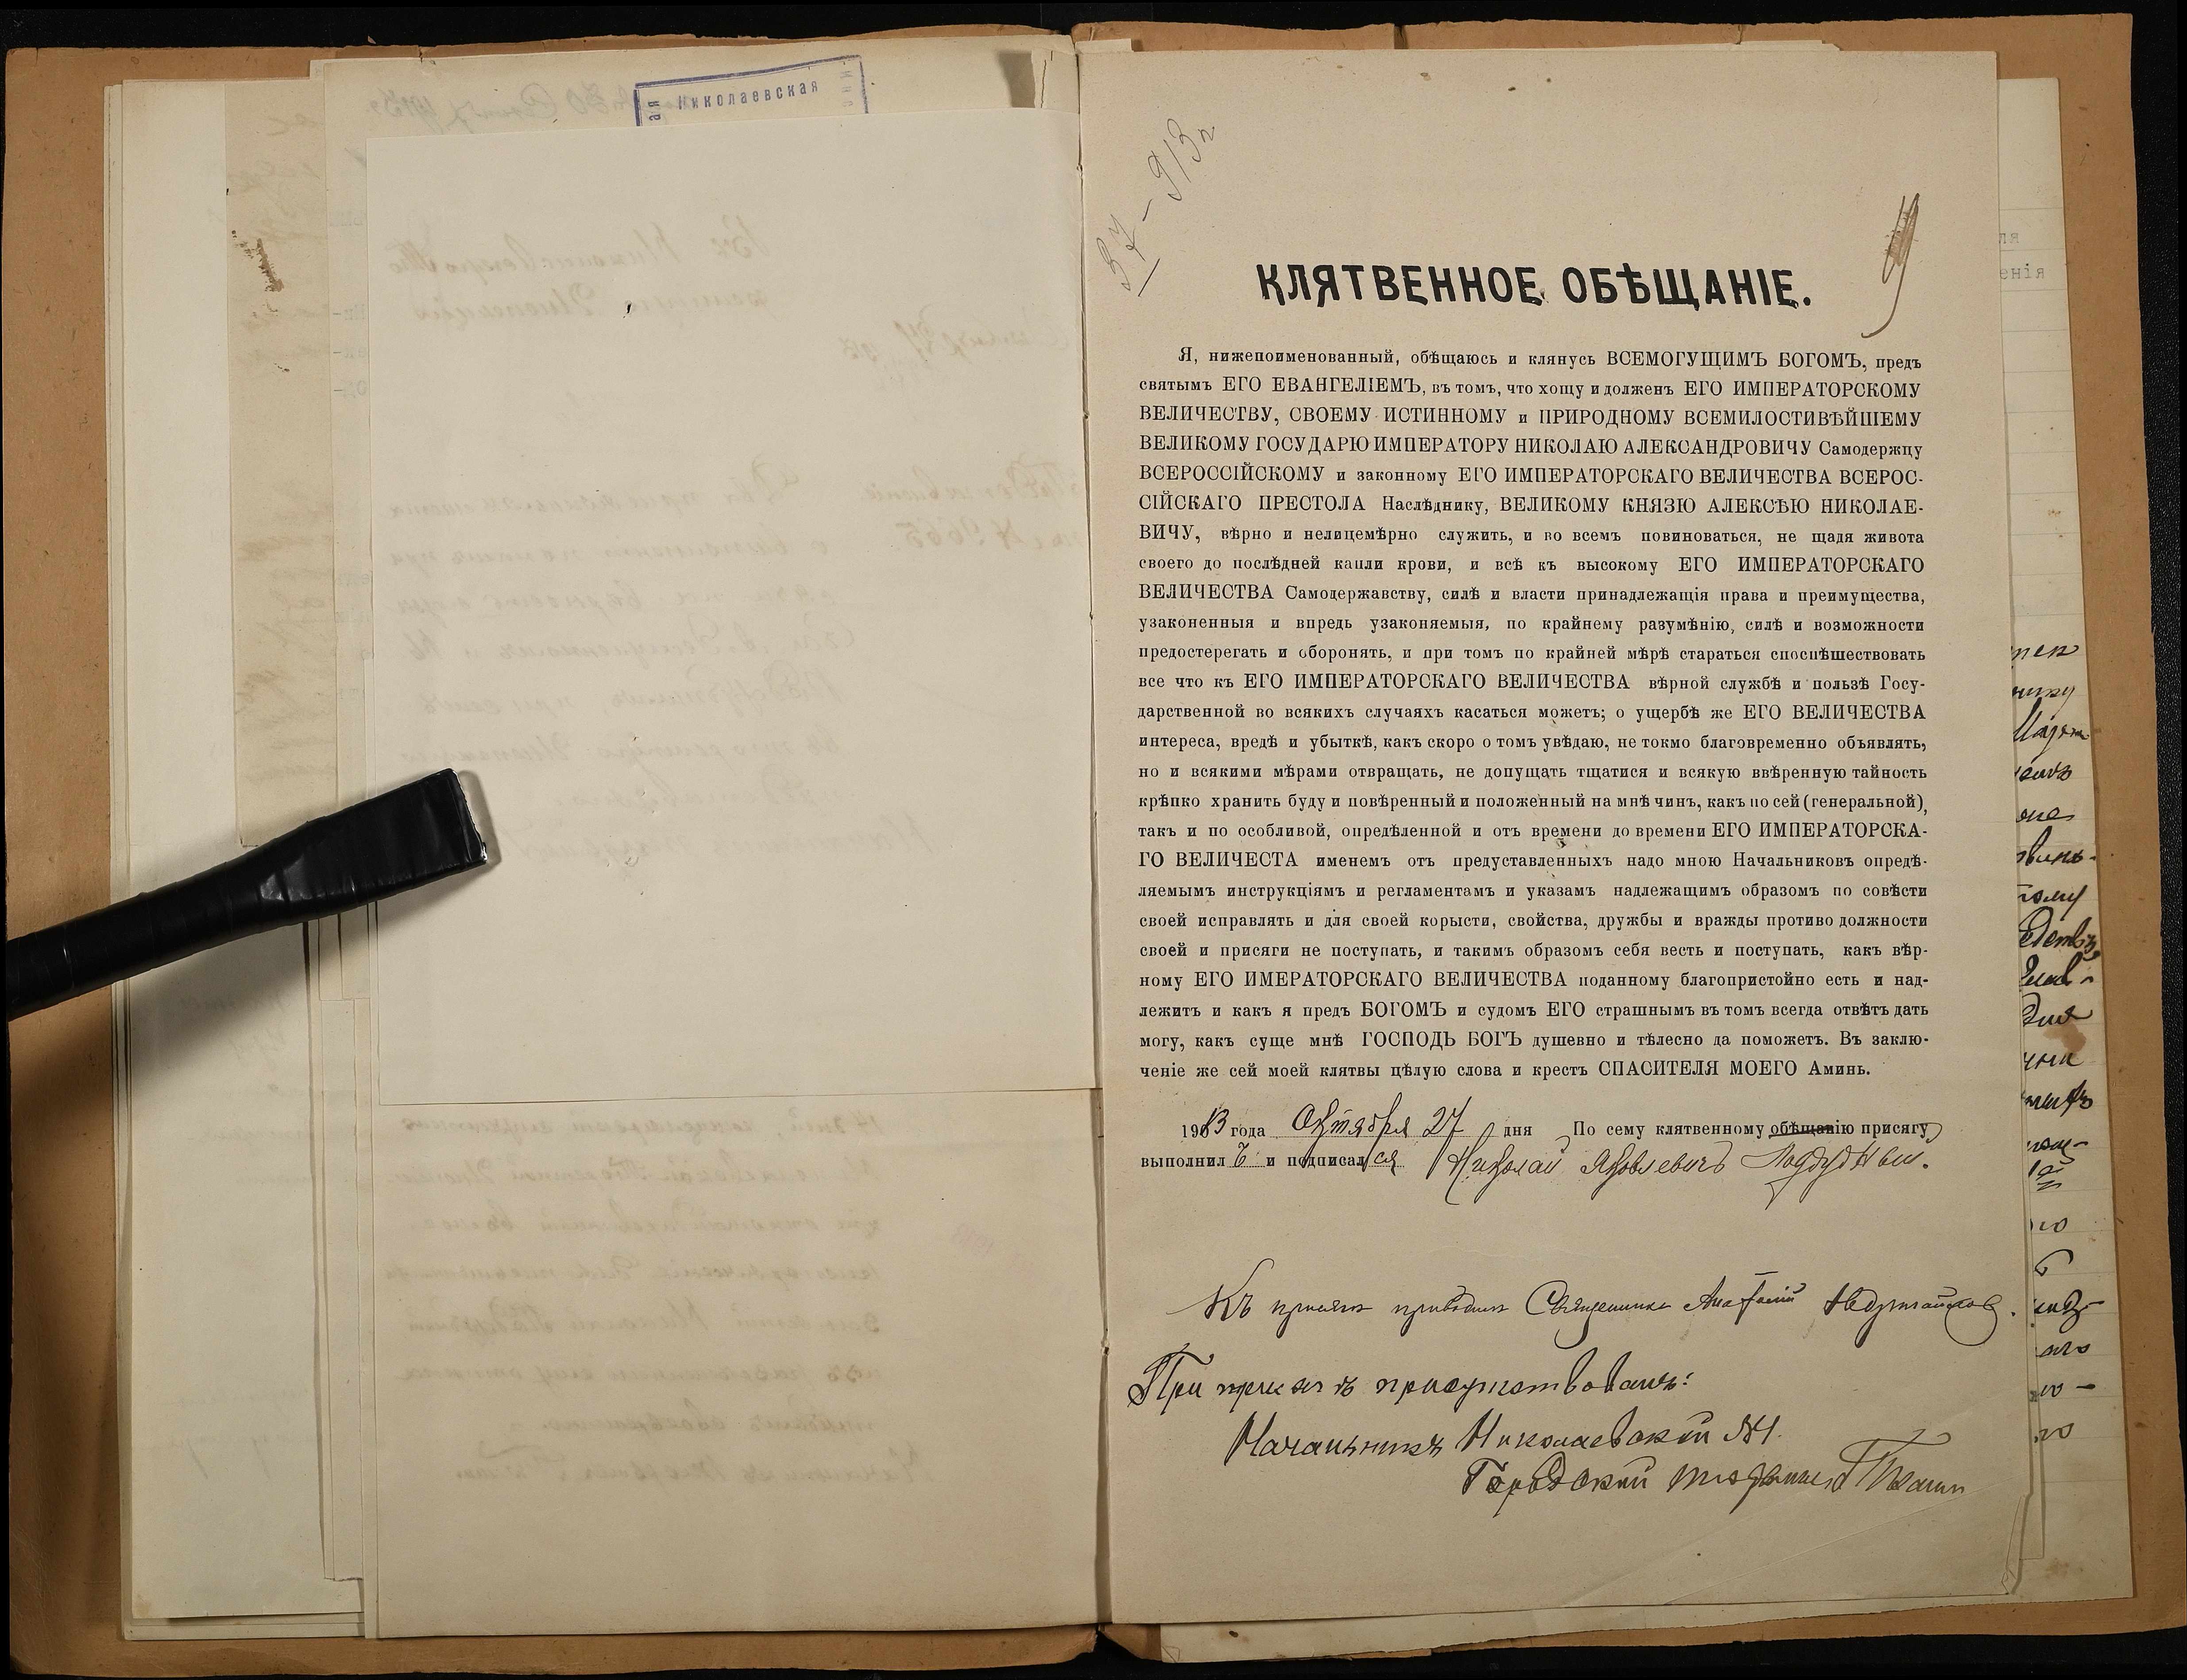 Николаевская
57 – 913 г
9
КЛЯТВЕННОЕ ОБѢЩАНІЕ.
Я, нижепоименованный, обѣщаюсь и клянусь ВСЕМОГУЩИМЪ БОГОМЪ, предъ
святымъ ЕГО ЕВАНГЕЛІЕМЪ, въ томъ, что хощу и долженъ ЕГО ИМПЕРАТОРСКОМУ
ВЕЛИЧЕСТВУ, СВОЕМУ ИСТИННОМУ и ПРИРОДНОМУ ВСЕМИЛОСТИВѢЙШЕМУ
ВЕЛИКОМУ ГОСУДАРЮ ИМПЕРАТОРУ НИКОЛАЮ АЛЕКСАНДРОВИЧУ Самодержцу
ВСЕРОССІЙСКОМУ и законному ЕГО ИМПЕРАТОРСКАГО ВЕЛИЧЕСТВА ВСЕРОС-
СІЙСКАГО ПРЕСТОЛА Наслѣднику, ВЕЛИКОМУ КНЯЗЮ АЛЕКСѢЮ НИКОЛАЕ-
ВИЧУ, вѣрно и нелицемѣрно служить, и во всемъ повиноваться, не щадя живота
своего до послѣдней капли крови, и всѣ къ высокому ЕГО ИМПЕРАТОРСКАГО
ВЕЛИЧЕСТВА Самодержавству, силѣ и власти принадлежащія права и преимущества,
узаконенныя и впредь узаконяемыя, по крайнему разумѣнію, силѣ и возможности
предостерегать и оборонять, и при томъ по крайней мѣрѣ стараться споспѣшествовать
все что къ ЕГО ИМПЕРАТОРСКАГО ВЕЛИЧЕСТВА вѣрной службѣ и пользѣ Госу-
дарственной во всякихъ случаяхъ касаться можетъ; о ущербѣ же ЕГО ВЕЛИЧЕСТВА
интереса, вредѣ и убыткѣ, какъ скоро о томъ увѣдаю, не токмо благовременно объявлять,
но и всякими мѣрами отвращать, не допущать тщатися и всякую ввѣренную тайность
крѣпко хранить буду и повѣренный и положенный на мнѣ чинъ, какъ по сей (генеральной),
такъ и по особливой, опредѣленной и отъ времени до времени ЕГО ИМПЕРАТОРСКА-
ГО ВЕЛИЧЕСТА именемъ отъ предуставленныхъ надо мною Начальниковъ опредѣ-
ляемымъ инструкціямъ и регламентамъ и указамъ надлежащимъ образомъ по совѣсти
своей исправлять и для своей корысти, свойства, дружбы и вражды противо должности
своей и присяги не поступать, и такимъ образомъ себя весть и поступать, какъ вѣр-
ному ЕГО ИМЕРАТОРСКАГО ВЕЛИЧЕСТВА поданному благопристойно есть и над-
лежитъ и какъ я предъ БОГОМЪ и судомъ ЕГО страшнымъ въ томъ всегда отвѣтъ дать
могу, какъ суще мнѣ ГОСПОДЬ БОГЪ душевно и тѣлесно да поможетъ. Въ заклю-
ченіе же сей моей клятвы цѣлую слова и крестъ СПАСИТЕЛЯ МОЕГО Аминь.
1913 года Октября 27 дня По сему клятвенному обѣщанію присягу
выполнилъ и подписался Николай Яковлевичъ
Къ присягѣ приводилъ Священникъ
При присягѣ присутствовалъ:
Начальникъ Николаевской №1.
Городской тюрьмы